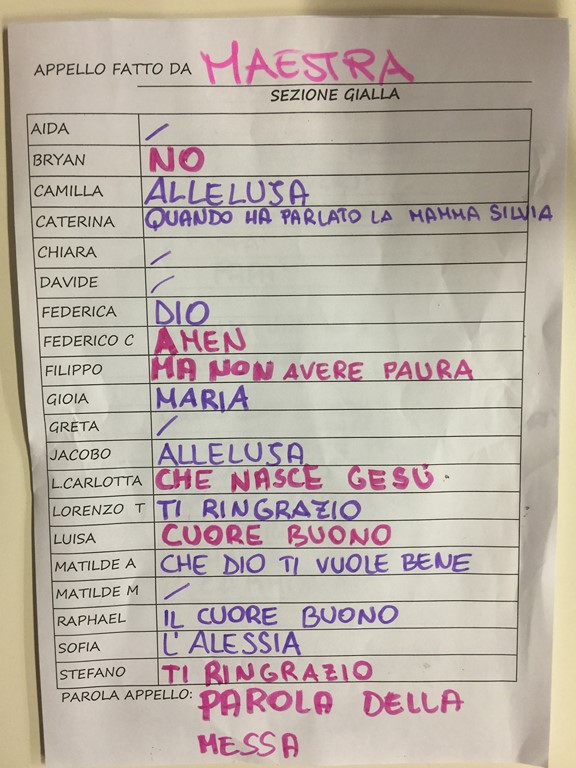 APPELLO FATTO DA MAESTRA
SEZIONE GIALLA
AIDA /
BRYAN NO
CAMILLA ALLELUJA
CATERINA QUANDO HA PARLATO LA MAMMA SILVIA
CHIARA /
DAVIDE /
FEDERICA DIO
FEDERICO C AMEN
FILIPPO MA NON AVERE PAURA
GIOIA MARIA
GRETA /
JACOBO ALLELUJA
L.CARLOTTA CHE NASCE GESÙ.
LORENZO T TI RINGRAZIO
LUISA CUORE BUONO
MATILDE A CHE DIO TI VUOLE BENE
MATILDE M /
RAPHAEL IL CUORE BUONO
SOFIA L'ALESSIA
STEFANO TI RINGRAZIO
PAROLA APPELLO: PAROLA DELLA
MESSA